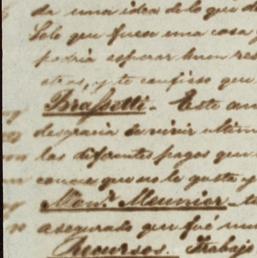 de una idea de lo que d
Solo que fuese una cosa
podria esperar buen res
otros, y te confieso que
Brassetti. Este am
desgracia de vivir ultim
las diferentes pagos que
conoce que no le guste y
Monr. Meunier - te
asegurado que fué mu
Recursos. Trabajo